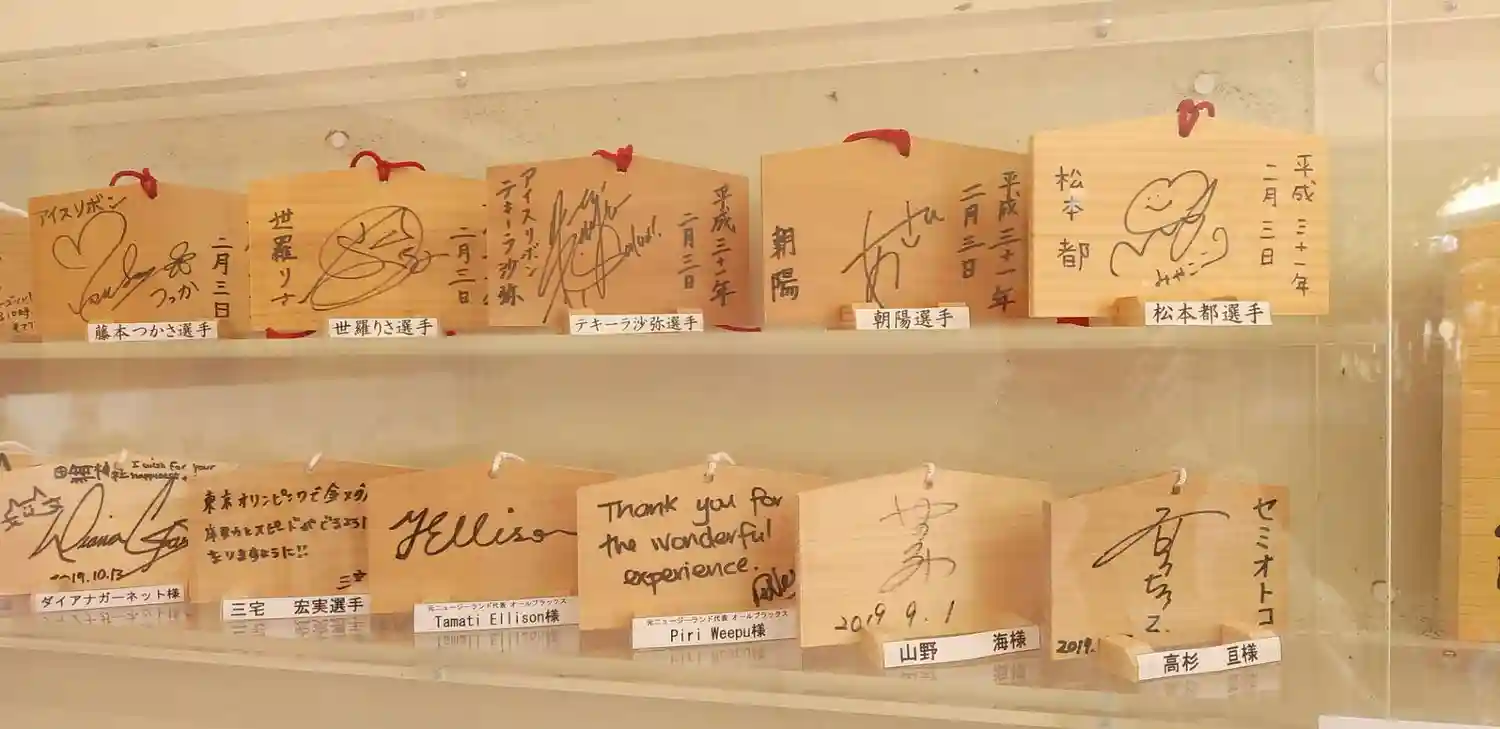 アイスリボン
つっか
二月三日
藤本つかさ選手
世羅りさ
二月三日
世羅りさ選手
アイスリボン
テキーラ沙弥
平成三十一年
二月三日
テキーラ沙弥選手
朝陽
平成三十一年
二月三日
朝陽選手
松本都
みやここ
平成三十一年
二月三日
松本都選手
田無神社
I wish for your
happiness.
19.10.13
ダイアナガーネット様
東京オリンピックで金メダ
三宅 宏実選手
TEllison
元ニュージーランド代表 オールブラックス
Tamati Ellison様
Thank you for
the wonderful
experience.
元ニュージーランド代表 オールブラックス
Piri Weepu様
2019 9.1
山野 海様
セミオトコ
2019.
高杉 亘様